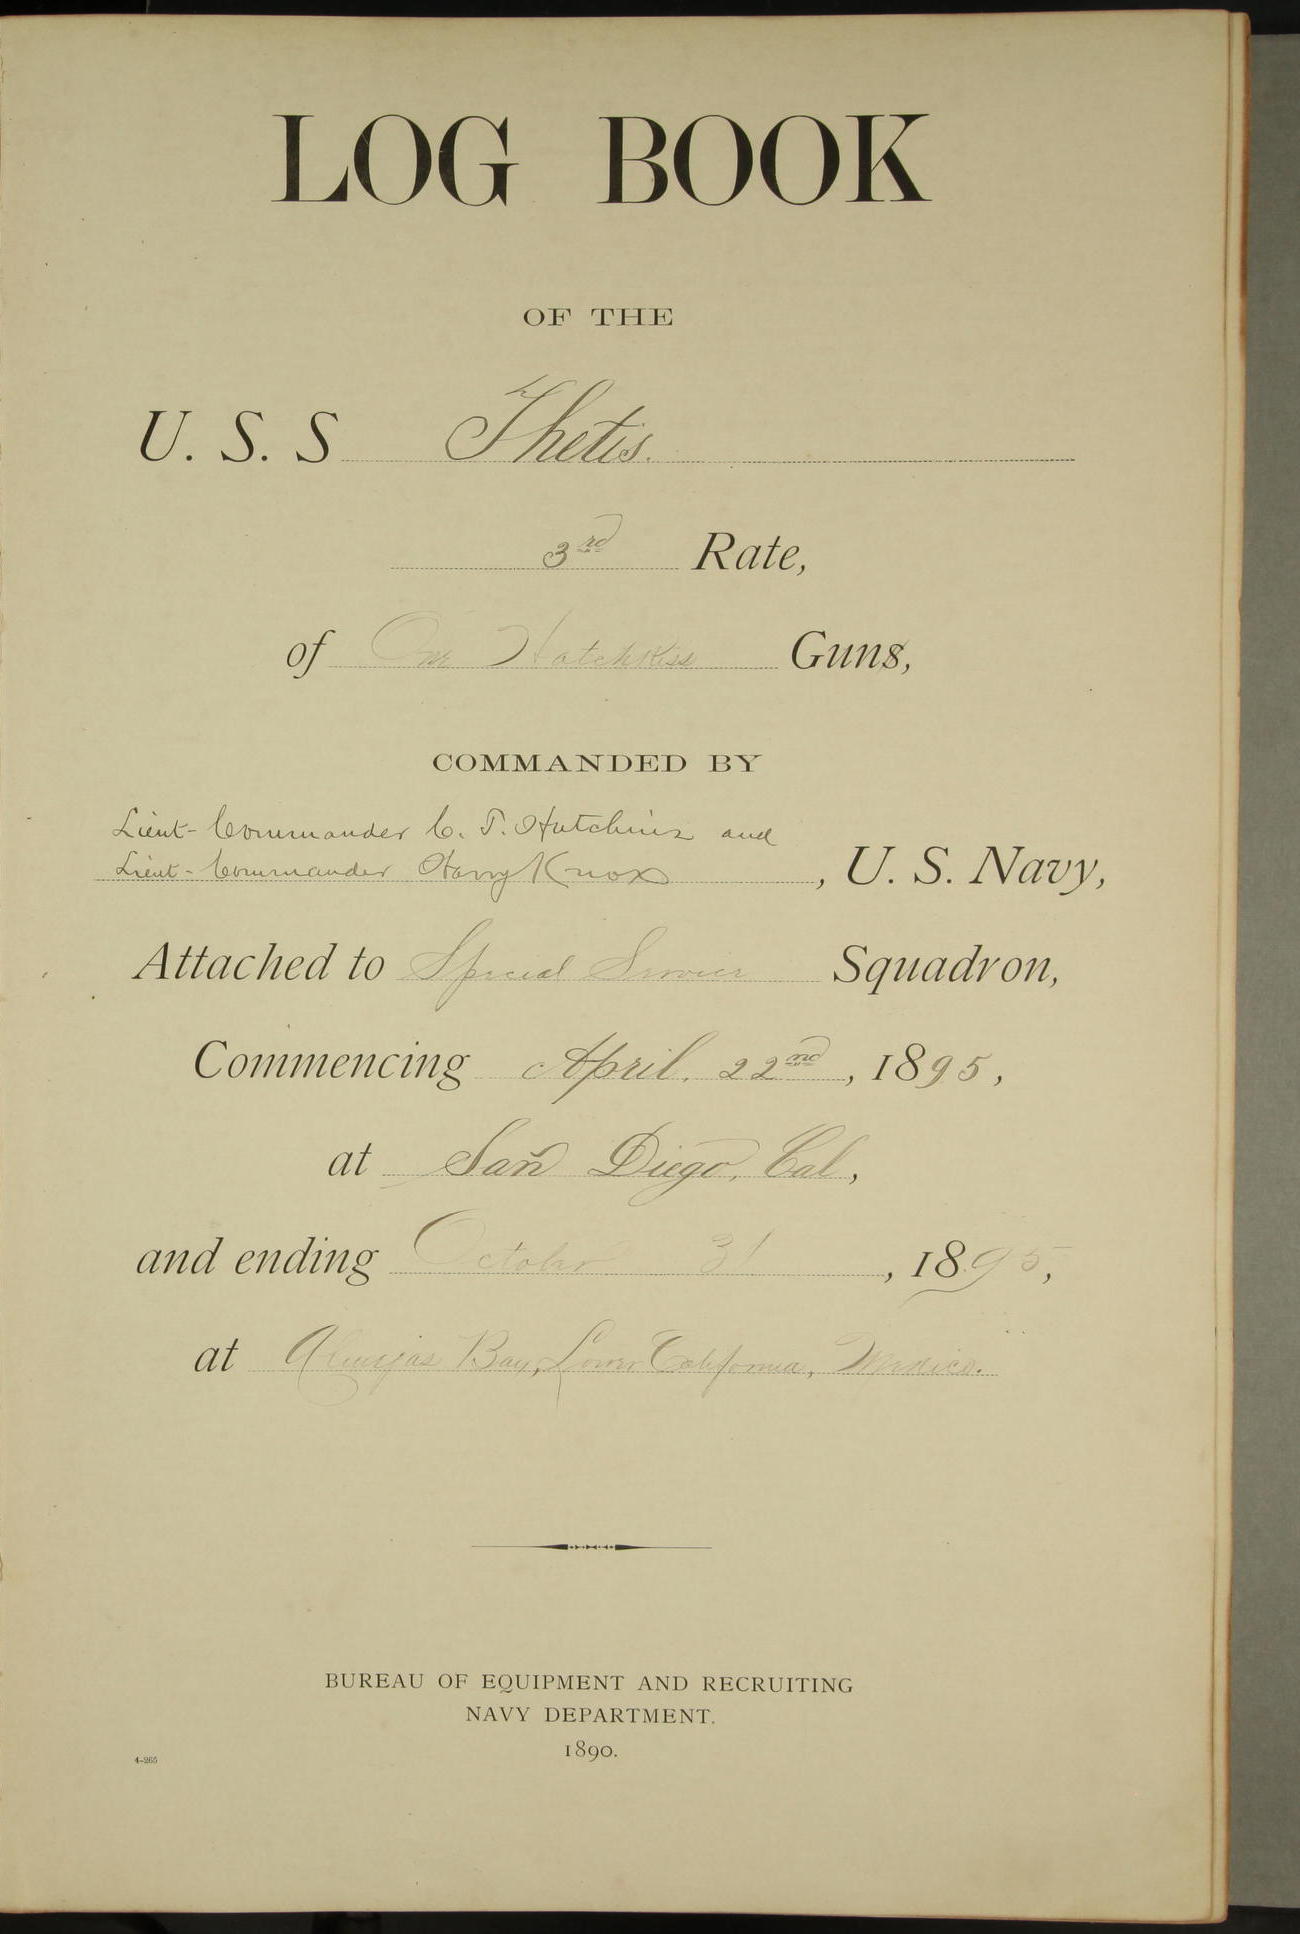 LOG BOOK
OF THE
U. S. S Thetis.
3rd Rate,
of One Hotchkiss Guns,
COMMANDED BY
Lieut-Commander C. T. Hutchins and
Lieut-Commander Harry Knox, U. S. Navy,
Attached to Special Service Squadron,
Commencing April. 22nd, 1895,
at San Diego, Cal,
and ending October 31, 1895,
at Almejas Bay, Lower California, Mexico.
BUREAU OF EQUIPMENT AND RECRUITING
NAVY DEPARTMENT.
1890.
4-265